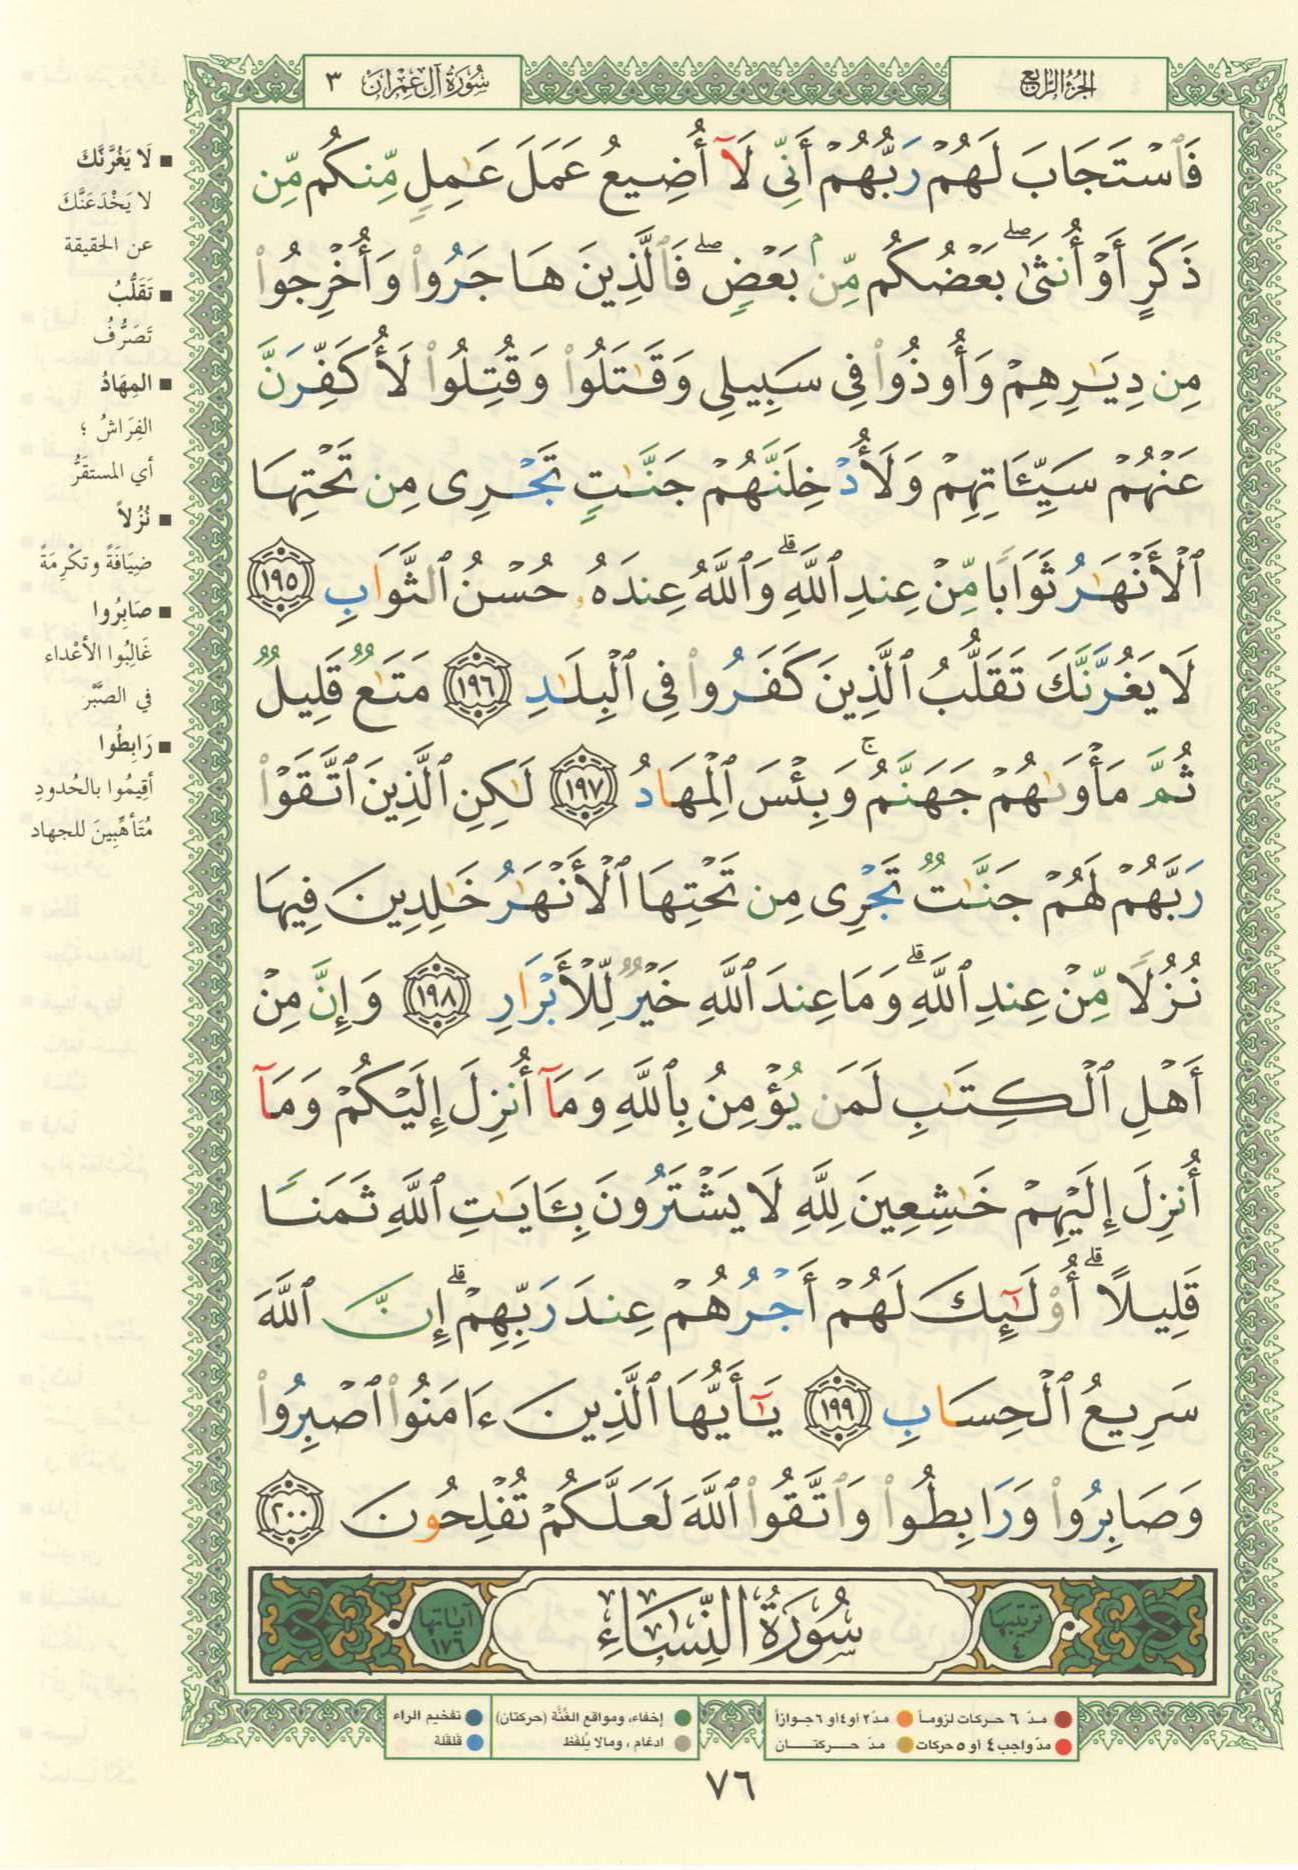 سُورَةُ آلِ عِمْرَان ٣
الجُزْءُ الرَّابِعُ
فَٱسْتَجَابَ لَهُمْ رَبُّهُمْ أَنِّى لَآ أُضِيعُ عَمَلَ عَـٰمِلٍ مِّنكُم مِّن
ذَكَرٍ أَوْ أُنثَىٰ ۖ بَعْضُكُم مِّنۢ بَعْضٍ ۖ فَٱلَّذِينَ هَاجَرُوا۟ وَأُخْرِجُوا۟
مِن دِيَـٰرِهِمْ وَأُوذُوا۟ فِى سَبِيلِى وَقَـٰتَلُوا۟ وَقُتِلُوا۟ لَأُكَفِّرَنَّ
عَنْهُمْ سَيِّـَٔاتِهِمْ وَلَأُدْخِلَنَّهُمْ جَنَّـٰتٍ تَجْرِى مِن تَحْتِهَا
ٱلْأَنْهَـٰرُ ثَوَابًا مِّنْ عِندِ ٱللَّهِ ۗ وَٱللَّهُ عِندَهُۥ حُسْنُ ٱلثَّوَابِ ١٩٥
لَا يَغُرَّنَّكَ تَقَلُّبُ ٱلَّذِينَ كَفَرُوا۟ فِى ٱلْبِلَـٰدِ ١٩٦ مَتَـٰعٌ قَلِيلٌ
ثُمَّ مَأْوَىٰهُمْ جَهَنَّمُ ۚ وَبِئْسَ ٱلْمِهَادُ ١٩٧ لَـٰكِنِ ٱلَّذِينَ ٱتَّقَوْا۟
رَبَّهُمْ لَهُمْ جَنَّـٰتٌ تَجْرِى مِن تَحْتِهَا ٱلْأَنْهَـٰرُ خَـٰلِدِينَ فِيهَا
نُزُلًا مِّنْ عِندِ ٱللَّهِ ۗ وَمَا عِندَ ٱللَّهِ خَيْرٌ لِّلْأَبْرَارِ ١٩٨ وَإِنَّ مِنْ
أَهْلِ ٱلْكِتَـٰبِ لَمَن يُؤْمِنُ بِٱللَّهِ وَمَآ أُنزِلَ إِلَيْكُمْ وَمَآ
أُنزِلَ إِلَيْهِمْ خَـٰشِعِينَ لِلَّهِ لَا يَشْتَرُونَ بِـَٔايَـٰتِ ٱللَّهِ ثَمَنًا
قَلِيلًا ۗ أُو۟لَـٰٓئِكَ لَهُمْ أَجْرُهُمْ عِندَ رَبِّهِمْ ۗ إِنَّ ٱللَّهَ
سَرِيعُ ٱلْحِسَابِ ١٩٩ يَـٰٓأَيُّهَا ٱلَّذِينَ ءَامَنُوا۟ ٱصْبِرُوا۟
وَصَابِرُوا۟ وَرَابِطُوا۟ وَٱتَّقُوا۟ ٱللَّهَ لَعَلَّكُمْ تُفْلِحُونَ ٢٠٠
ترتيبها ٤
سُورَةُ النِّسَاءِ
آياتها ١٧٦
■ لَا يَغُرَّنَّكَ
لا يَخْدَعَنَّكَ
عن الحقيقة
■ تَقَلُّبُ
تَصَرُّفُ
■ المِهَادُ
الفِرَاشُ ؛
أي المستقَرُّ
■ نُزُلاً
ضِيَافَةً وتكْرِمَةً
■ صَابِرُوا
غَالِبُوا الأعْداء
في الصَّبْر
■ رَابِطُوا
أقِيمُوا بالحُدودِ
مُتَأهِّبِينَ للجهاد
مدّ ٦ حركات لزوماً
مدّ٢ أو٤أو ٦جوازاً
إخفاء، ومواقع الغُنَّة (حركتان)
تفخيم الراء
مدّ واجب ٤ أو ٥ حركات
مدّ حركتان
ادغام ، ومالا يُلفَظ
قلقلة
٧٦